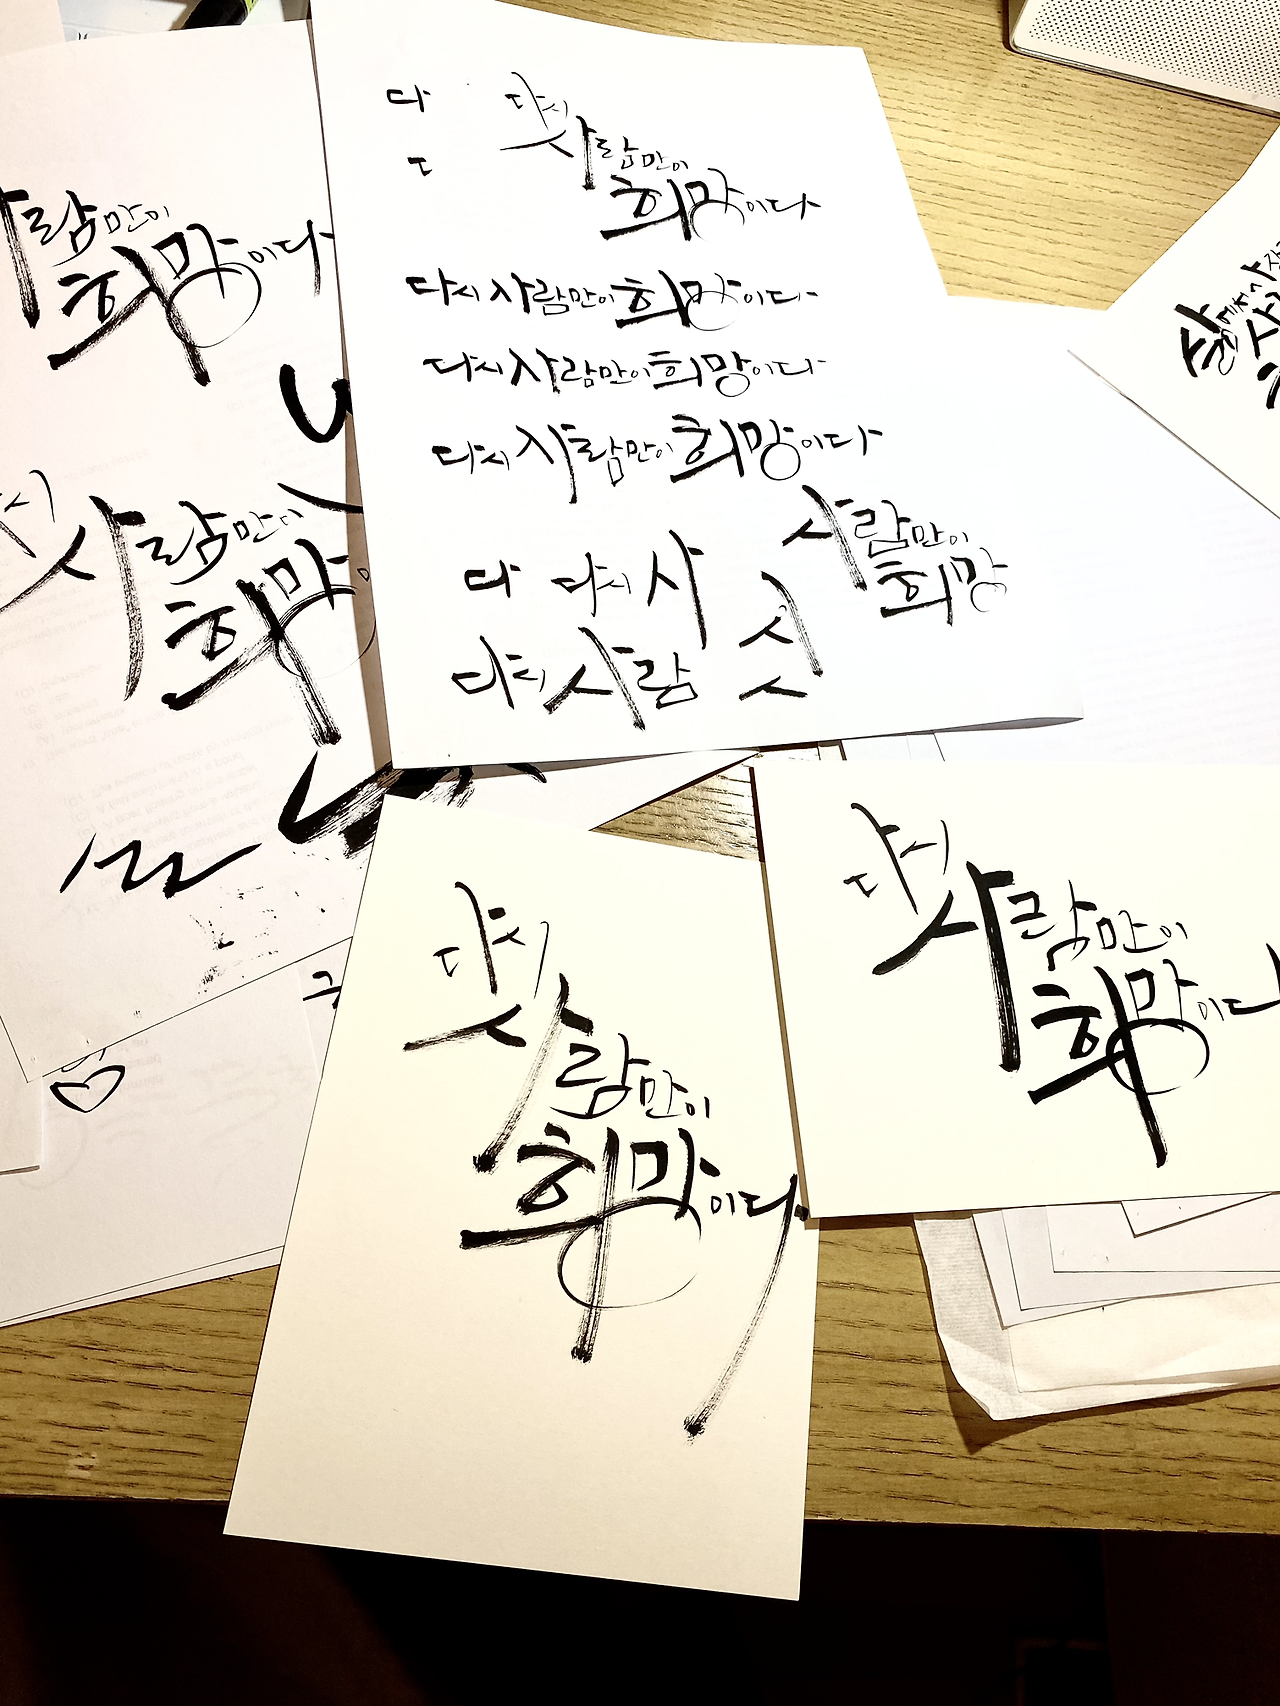 다
다시
사람만이
희망이다
ㄷ
다시 사람만이 희망이다
다시 사람만이 희망이다
다시 사람만이 희망이다
사람만이
희망
다 다시 사
다시 사람
사람만이
희망이다
다시
사람만이
희망
다시
사람만이
희망이다
다시
사람만이
희망이다